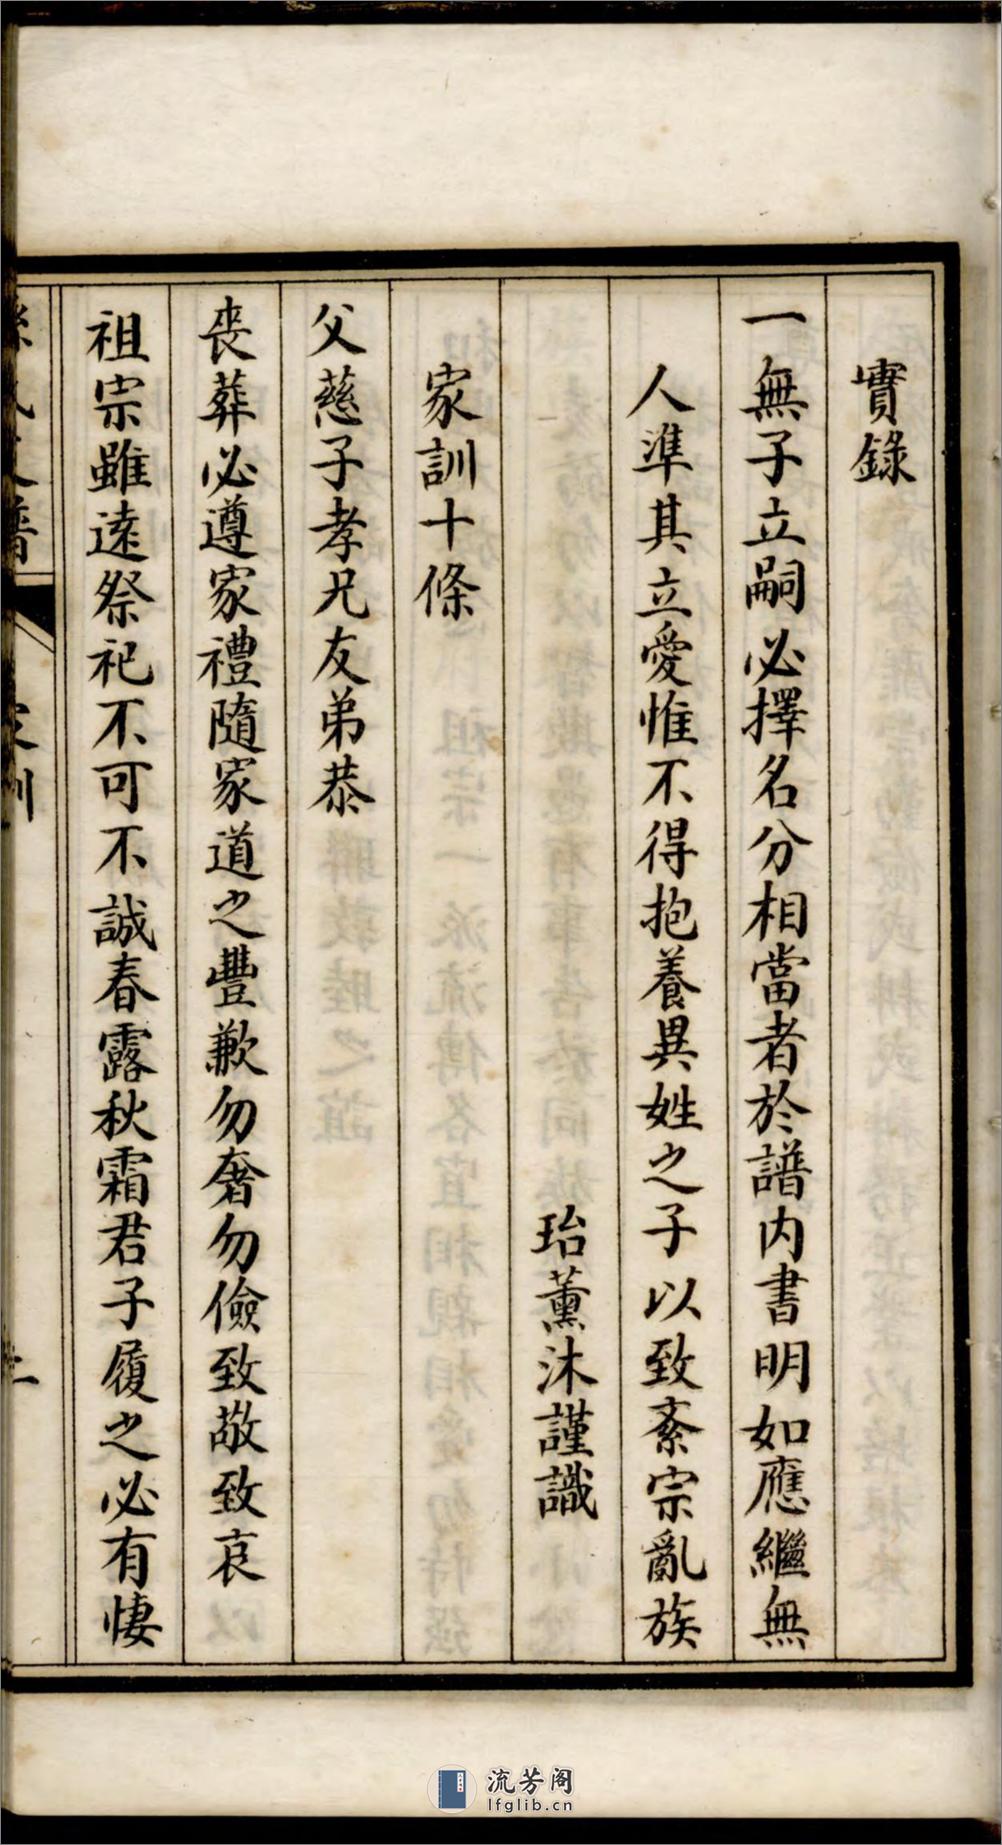 實錄
一無子立嗣必擇名分相當者於譜内書明如應繼無
人準其立愛惟不得抱養異姓之子以致紊宗亂族
珆薰沐謹識
家訓十條
父慈子孝兄友弟恭
喪葬必遵家禮隨家道之豐歉勿奢勿儉致敬致哀
祖宗雖遠祭祀不可不誠春露秋霜君子履之必有悽
流芳阁
lfglib.cn